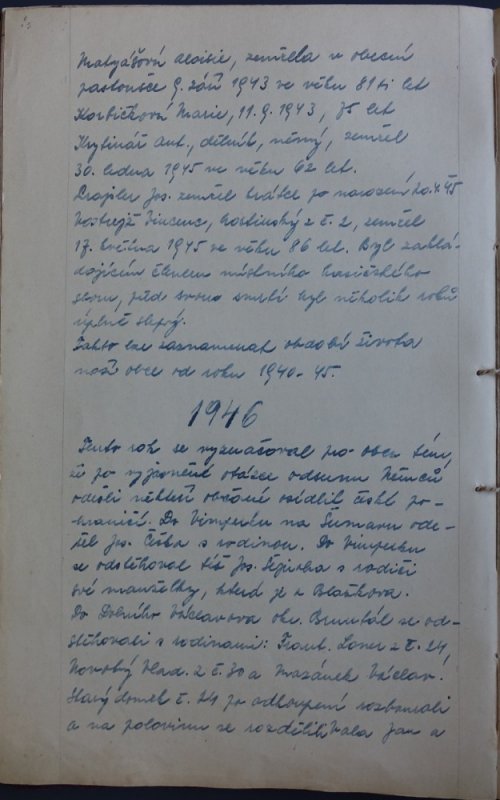 Matyášová Aloisie, zemřela v obecní
pastoušce 9. září 1943 ve věku 81ti let
Korbičková Marie, 11. 9. 1943, 75 let
Krytinář Ant., dělník, němý, zemřel
30. ledna 1945 ve věku 62 let.
Jos. zemřel krátce po narození 45
Vincenc, hostinský z č. 2, zemřel
17. května 1945 ve věku 86 let. Byl zaklá-
dajícím členem místního hasičského
sboru, před svou smrtí byl několik roků
úplně slepý.
Takto lze zaznamenat období života
naší obce od roku 1940-45.
1946
Tento rok se vyznačoval pro obec tím,
že po vyjasnění otázce odsunu Němců
odešli někteří občané osídlit české po-
hraničí. Do Vimperku na Šumavu ode-
šel Jos. Čečka s rodinou. Do Vimperku
se odstěhoval též Jos. s rodiči
své manželky, která je z Blažkova.
Do Dolního Václavova okr. Bruntál se od-
stěhovali s rodinami: Frant. z č. 24,
Novotný Vlad. z č. 30 a Mazánek Václav.
Starý domek č. 24 po odloupení rozbourali
a na polovinu se rozdělili Vala Jan a